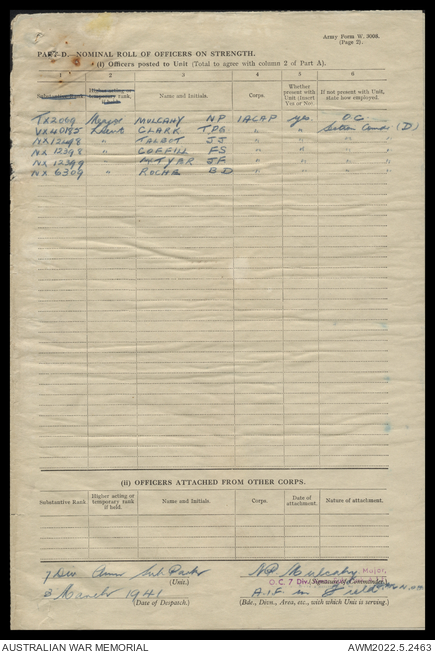 Army Form W. 3008.
(Page 2).
PART D.—NOMINAL ROLL OF OFFICERS ON STRENGTH.
(i) Officers posted to Unit (Total to agree with column 2 of Part A).
1 2 3 4 5 6
Substantive Rank. Higher acting or temporary rank, if held. Name and Initials. Corps. Whether present with Unit (Insert Yes or No). If not present with Unit, state how employed.
TX2009 Major MULCAHY NP 1ACAP yes O.C.
VX40185 Lieut CLARK TPG " " Section Comds (D)
" TALBOT JJ " " "
NX 12398 " COFFILL FS " " "
NX 12399 " JF " " "
NX 6309 " ROCHE BD " " "
(ii) OFFICERS ATTACHED FROM OTHER CORPS.
Substantive Rank Higher acting or temporary rank if held. Name and Initials. Corps. Date of attachment. Nature of attachment.
7 Div Amm Sub Park NP Mulcahy Major,
(Unit.) O.C. 7 Div. (Signature of Commander.)
3 March 1941 A.I.F. in Field
(Date of Despatch.) (Bde., Divn., Area, etc., with which Unit is serving.)
AUSTRALIAN WAR MEMORIAL AWM2022.5.2463